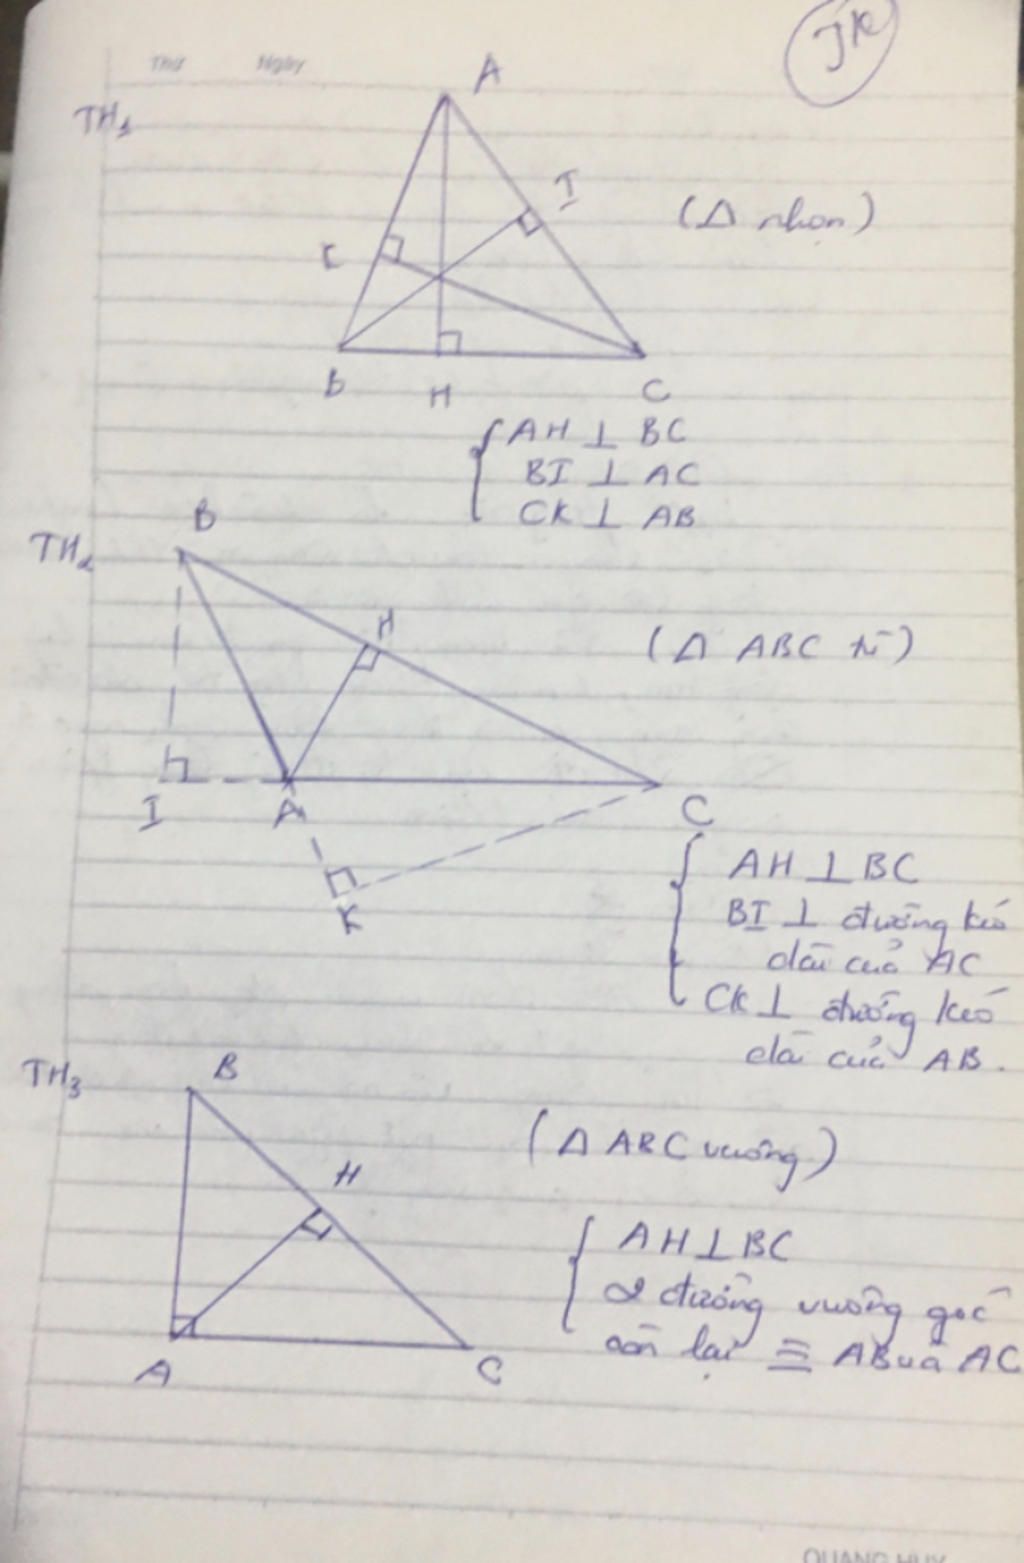 JK
Thứ Ngày
TH1
A
I
(Δ nhọn)
K
B H C
{ AH ⊥ BC
BI ⊥ AC
CK ⊥ AB
TH2
B
H
(Δ ABC tù)
I A C
K
{ AH ⊥ BC
BI ⊥ đường kéo
dài của AC
CK ⊥ đường kéo
dài của AB.
TH3
B
(Δ ABC vuông)
H
{ AH ⊥ BC
2 đường vuông góc
còn lại ≡ AB và AC
A C
QUANG HUY